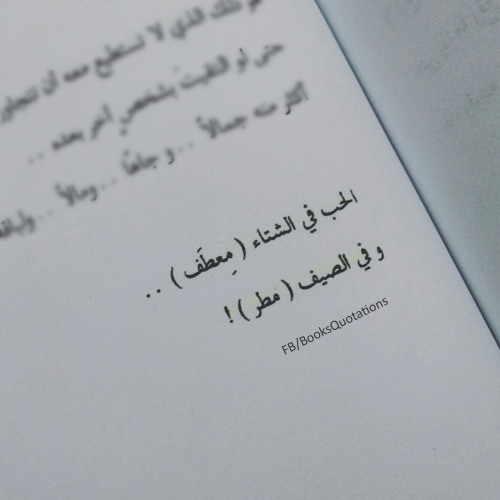 هو ذلك الذي لا تستطيع معه أن تتجاوز
حتى لو التقيتَ بشخصٍ آخر بعده ..
أكثر منه جمالاً .. و جاهًا .. ومالاً .. ولباقة
الحب في الشتاء ( مِعطَف ) ..
و في الصيف ( مطر ) !
FB/BooksQuotations